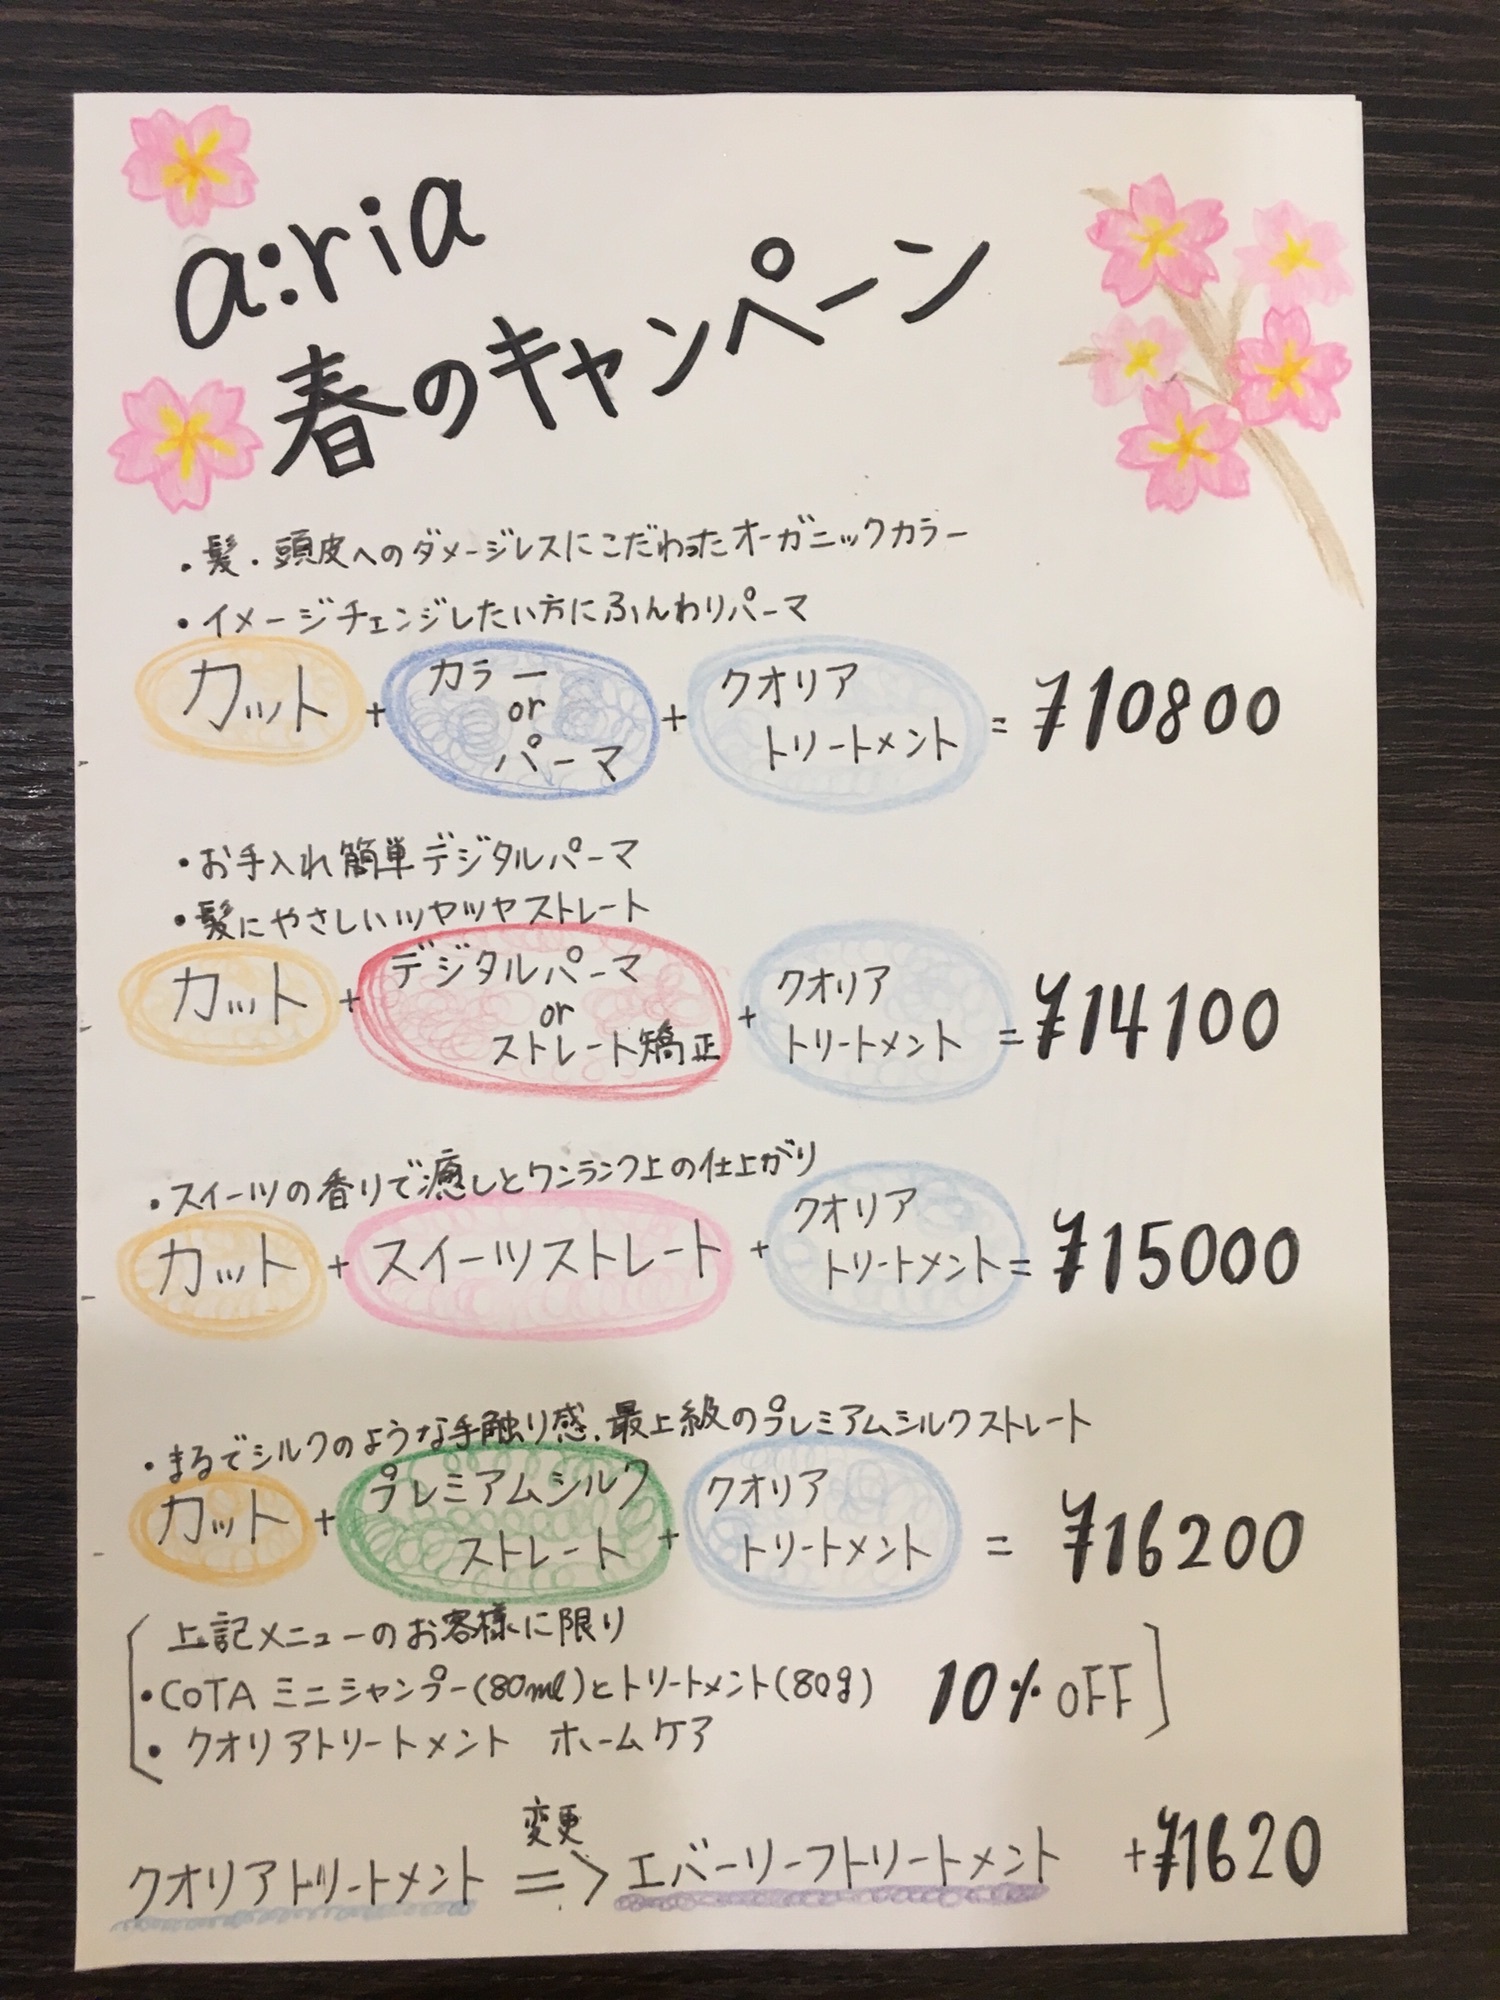 a:ria
春のキャンペーン
・髪・頭皮へのダメージレスにこだわったオーガニックカラー
・イメージチェンジしたい方にふんわりパーマ
カット + カラー or パーマ + クオリア トリートメント = ¥10800
・お手入れ簡単デジタルパーマ
・髪にやさしいツヤツヤストレート
カット + デジタルパーマ or ストレート矯正 + クオリア トリートメント = ¥14100
・スイーツの香りで癒しとワンランク上の仕上がり
カット + スイーツストレート + クオリア トリートメント = ¥15000
・まるでシルクのような手触り感、最上級のプレミアムシルクストレート
カット + プレミアムシルク ストレート + クオリア トリートメント = ¥16200
上記メニューのお客様に限り
・COTA ミニシャンプー(80ml)とトリートメント(80g) 10% OFF
・クオリアトリートメント ホームケア
変更
クオリアトリートメント => エバーリーフトリートメント +¥1620